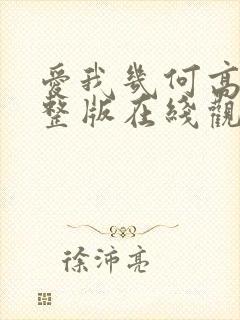 愛我幾何高
整版在綫觀
徐沛亮